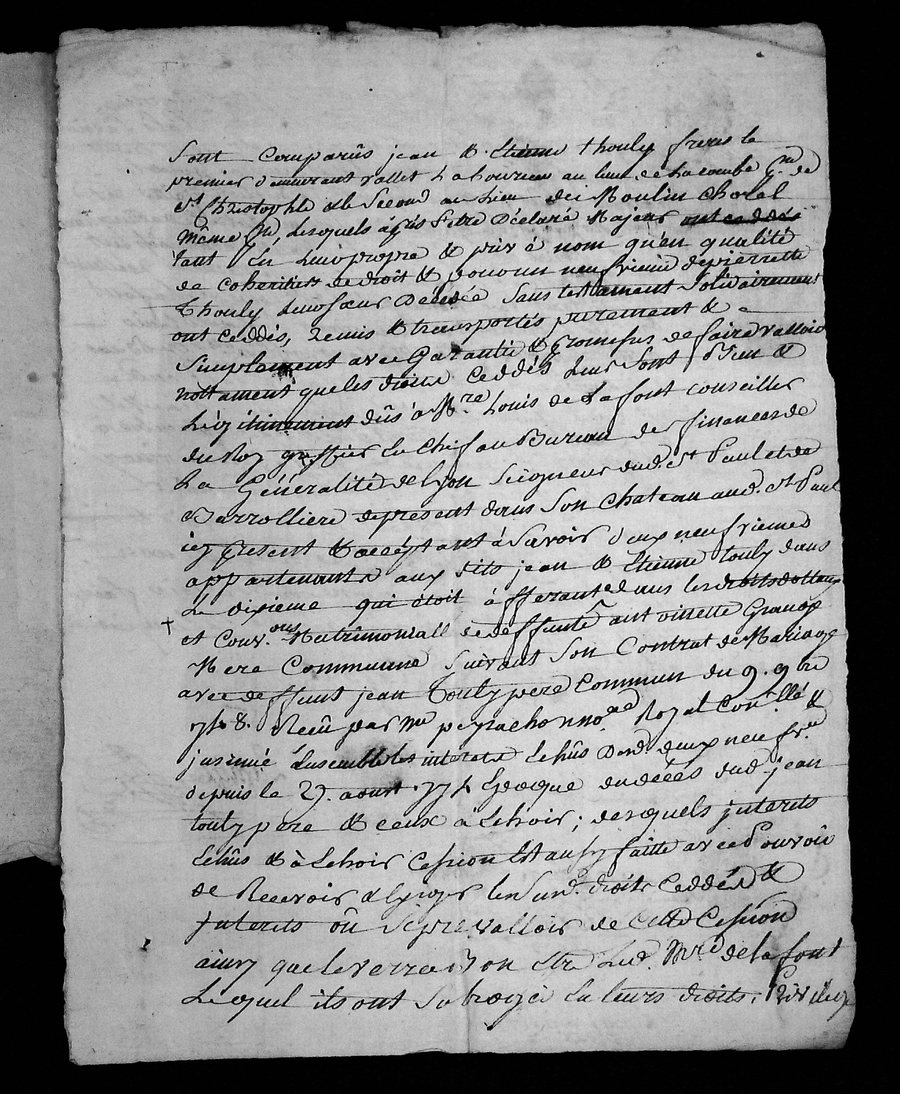 Sont comparûs jean & Etienne thouly freres le
premier demeurant vallet au lieu de Lacombe
St Christophle & le Second au Lieu des Moulin Cholet
même lesquels après Setre Déclaré Majeur ont ceddés
tant En Leur propre & privé nom qu'en qualité
de coheritiers de droit & pour un neufvieme de pierrette
Thouly Leur sœur Decedée Sans testament Solidairement
ont ceddés, remis & transportés purement &
Simplement avec Garantie & promesse de faire valloir
nottament que les droits Ceddés Leur Sont Bien &
Légitimement dûs à Mre Louis de Lafont conseiller
du Roy greffier En Chef au Bureau de finances de
La Généralité de Lyon Seigneur dud. St Paul et de
Barrolliere de present dans Son Chateau aud. St Paul
icy present & acceptant à Savoir deux neufviemes
appartenants aux dits jean & Etienne touly dans
Le dixieme qui étoit àfferant dans les droits dottaux
et Conv.ons Matrimonialles de deffunte antoinette Grange
Mere Commune Suivant Son Contrat de Mariage
avec deffunt jean touly pere Commun du 9. 9bre
1748. Reçû par Me peyrachon no.re Royal Con.llé &
jnsinué Ensemble les interets Echûs Desd. deux neufv.es
depuis le 27. aoust 1774 Epoque du décés dud. jean
touly pere & ceux à Echoir; desquels jnterets
Echûs & à Echoir Cession Est aussy faitte avec Pouvoir
de Recevoir & Exiger les Sus.d droits Ceddés &
jnterets où Se prevalloir de Cette Cession
ainsy que le verra Bon Etre Led. Mre de Lafont
Lequel ils ont Subrogé En leurs droits, Privilege